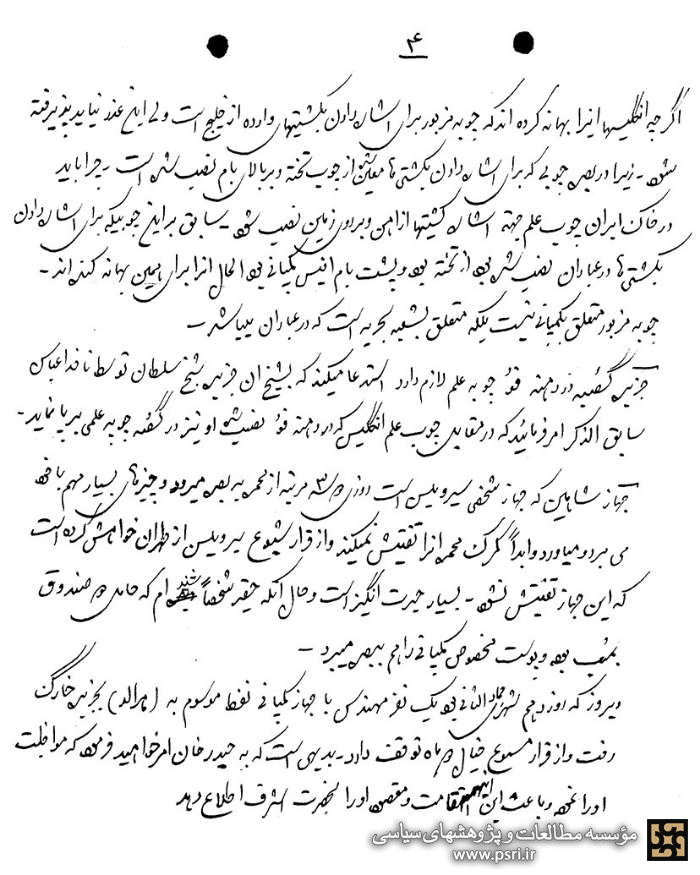 ۴
اگرچه انگلیسها اینرا بهانه کرده اند که چوبه مزبور برای اشاره دادن بکشتیهای وارده از خلیج است ولی این عذر نباید پذیرفته
شود - زیرا در بصره چوبی که برای اشاره دادن بکشتی ها معین شده از چوب تخته و بر بالای بام نصب شده است - چرا باید
در خاک ایران چوب علم جهة اشاره کشتیها از آهن و بر روی زمین نصب شود - سابق بر این چوبیکه برای اشاره دادن
بکشتی ها در عبادان نصب شده بود از تخته بود و پشت بام آفیس کمپانی بود الحال آنرا برای همین بهانه کنده اند -
چوبه مزبور متعلق بکمپانی نیست بلکه متعلق بشعبه بحریه است که در عبادان میباشد -
جزیره گصبه در دهنه فو چوبه علم لازم دارد استدعا میکند که بشیخ آن جزیره شیخ سلطان توسط ناخدا عباس
سابق الذکر امر فرمائید که در مقابل چوب علم انگلیس که در دهنه فو نصب شده او نیز در گصبه چوبه علمی برپا نماید -
جهاز شاهین که جهاز شخصی سیرویلسن است روزی ۲ / ۳ مرتبه از محمره به بصره میرود و چیزهای بسیار مهم با خود
می برد و میاورد و ابداً گمرک محمره آنرا تفتیش نمیکند و از قرار شیوع سیرویلسن از طهران خواهش کرده است
که این جهاز تفتیش نشود - بسیار حیرت انگیز است و حال آنکه حقیر شخصاً شنیده ام که حامل صندوق
بمب بود و پوست مخصوص کمپانی را هم ببصره میبرد -
دیروز که روز دهم شهر جمادی الثانی بود یک نفر مهندس با جهاز کمپانی نفط موسوم به ( ) بجزیره خارگ
رفت و از قرار مسموع خیال ماه توقف دارد - بدیهی است که به حیدر خان امر خواهید فرمود که مواظبت
او را نموده و باعث این اقامت و مقصود او را بحضرت اشرف اطلاع دهد
مؤسسه مطالعات و پژوهشهای سیاسی
www.psri.ir